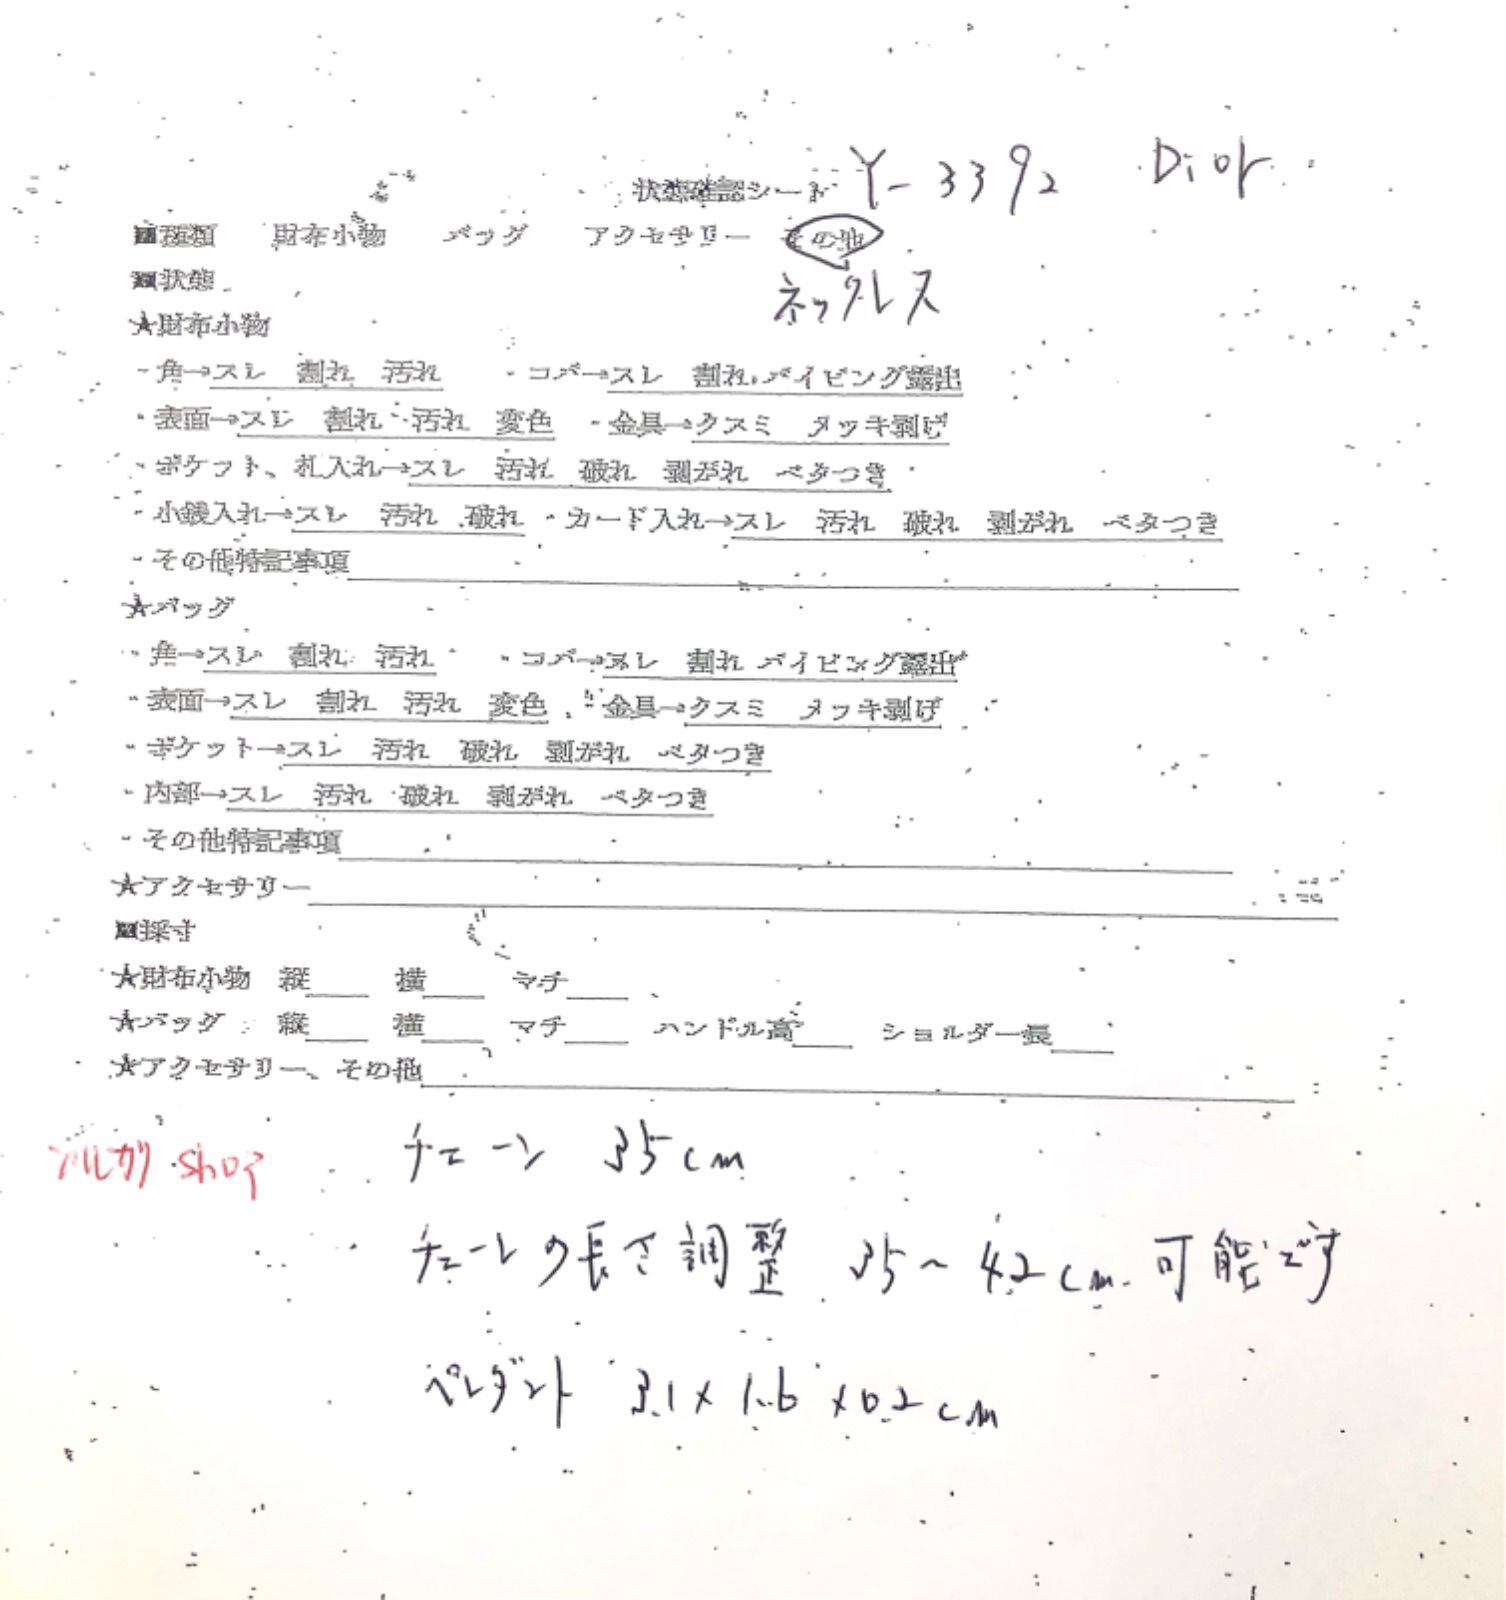 状態確認シート Y-3392 Dior
■種類 財布小物 バッグ アクセサリー その他
ネックレス
■状態
★財布小物
・角→スレ 割れ 汚れ ・コバ→スレ 割れ パイピング露出
・表面→スレ 割れ 汚れ 変色 ・金具→クスミ メッキ剥げ
・ポケット、札入れ→スレ 汚れ 破れ 剥がれ ベタつき
・小銭入れ→スレ 汚れ 破れ ・カード入れ→スレ 汚れ 破れ 剥がれ ベタつき
・その他特記事項
★バッグ
・角→スレ 割れ 汚れ ・コバ→スレ 割れ パイピング露出
・表面→スレ 割れ 汚れ 変色 ・金具→クスミ メッキ剥げ
・ポケット→スレ 汚れ 破れ 剥がれ ベタつき
・内部→スレ 汚れ 破れ 剥がれ ベタつき
・その他特記事項
★アクセサリー
■採寸
★財布小物 縦 横 マチ
★バッグ 縦 横 マチ ハンドル高 ショルダー長
★アクセサリー、その他
shop チェーン 35cm
チェーンの長さ調整 35～42cm 可能です
ペンダント 3.1×1.6×0.2cm